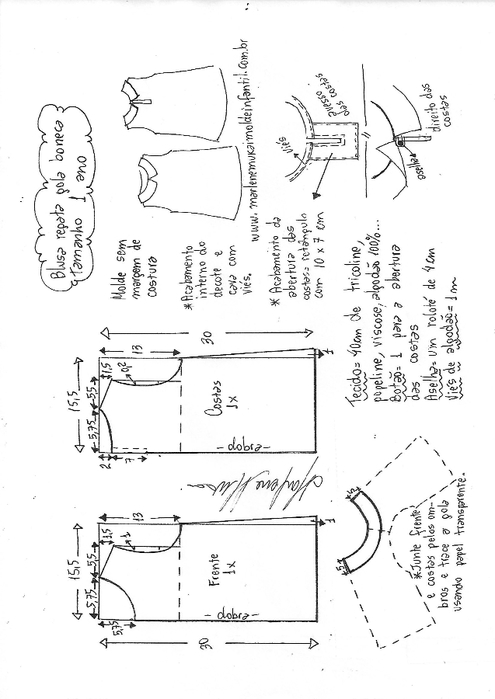 Blusa regata gola boneca
tamanho 1
ano
Molde sem
margem de
costura
*Acabamento
interno do
decote e
cava com
viés.
www.marlenemukaimoldeinfantil.com.br
* Acabamento da
abertura das
costas= retângulo
com 10 x 7 cm
viés
avesso
das costas
aselha
direito das
costas
15,5
5,75
5,5
1,5
0,2
13
30
2
7
Costas
1x
-dobra-
1
15,5
5,75
5,5
1,5
1
13
30
5,75
Frente
1x
-dobra-
1
Tecido= 40cm de tricoline,
popeline, viscose, algodão 100%...
Botão= 1 para a abertura
das costas
Aselha= um roloté de 4cm
Viés de algodão= 1m
*Junte frente
e costas pelos om-
bros e trace a gola
usando papel transparente.